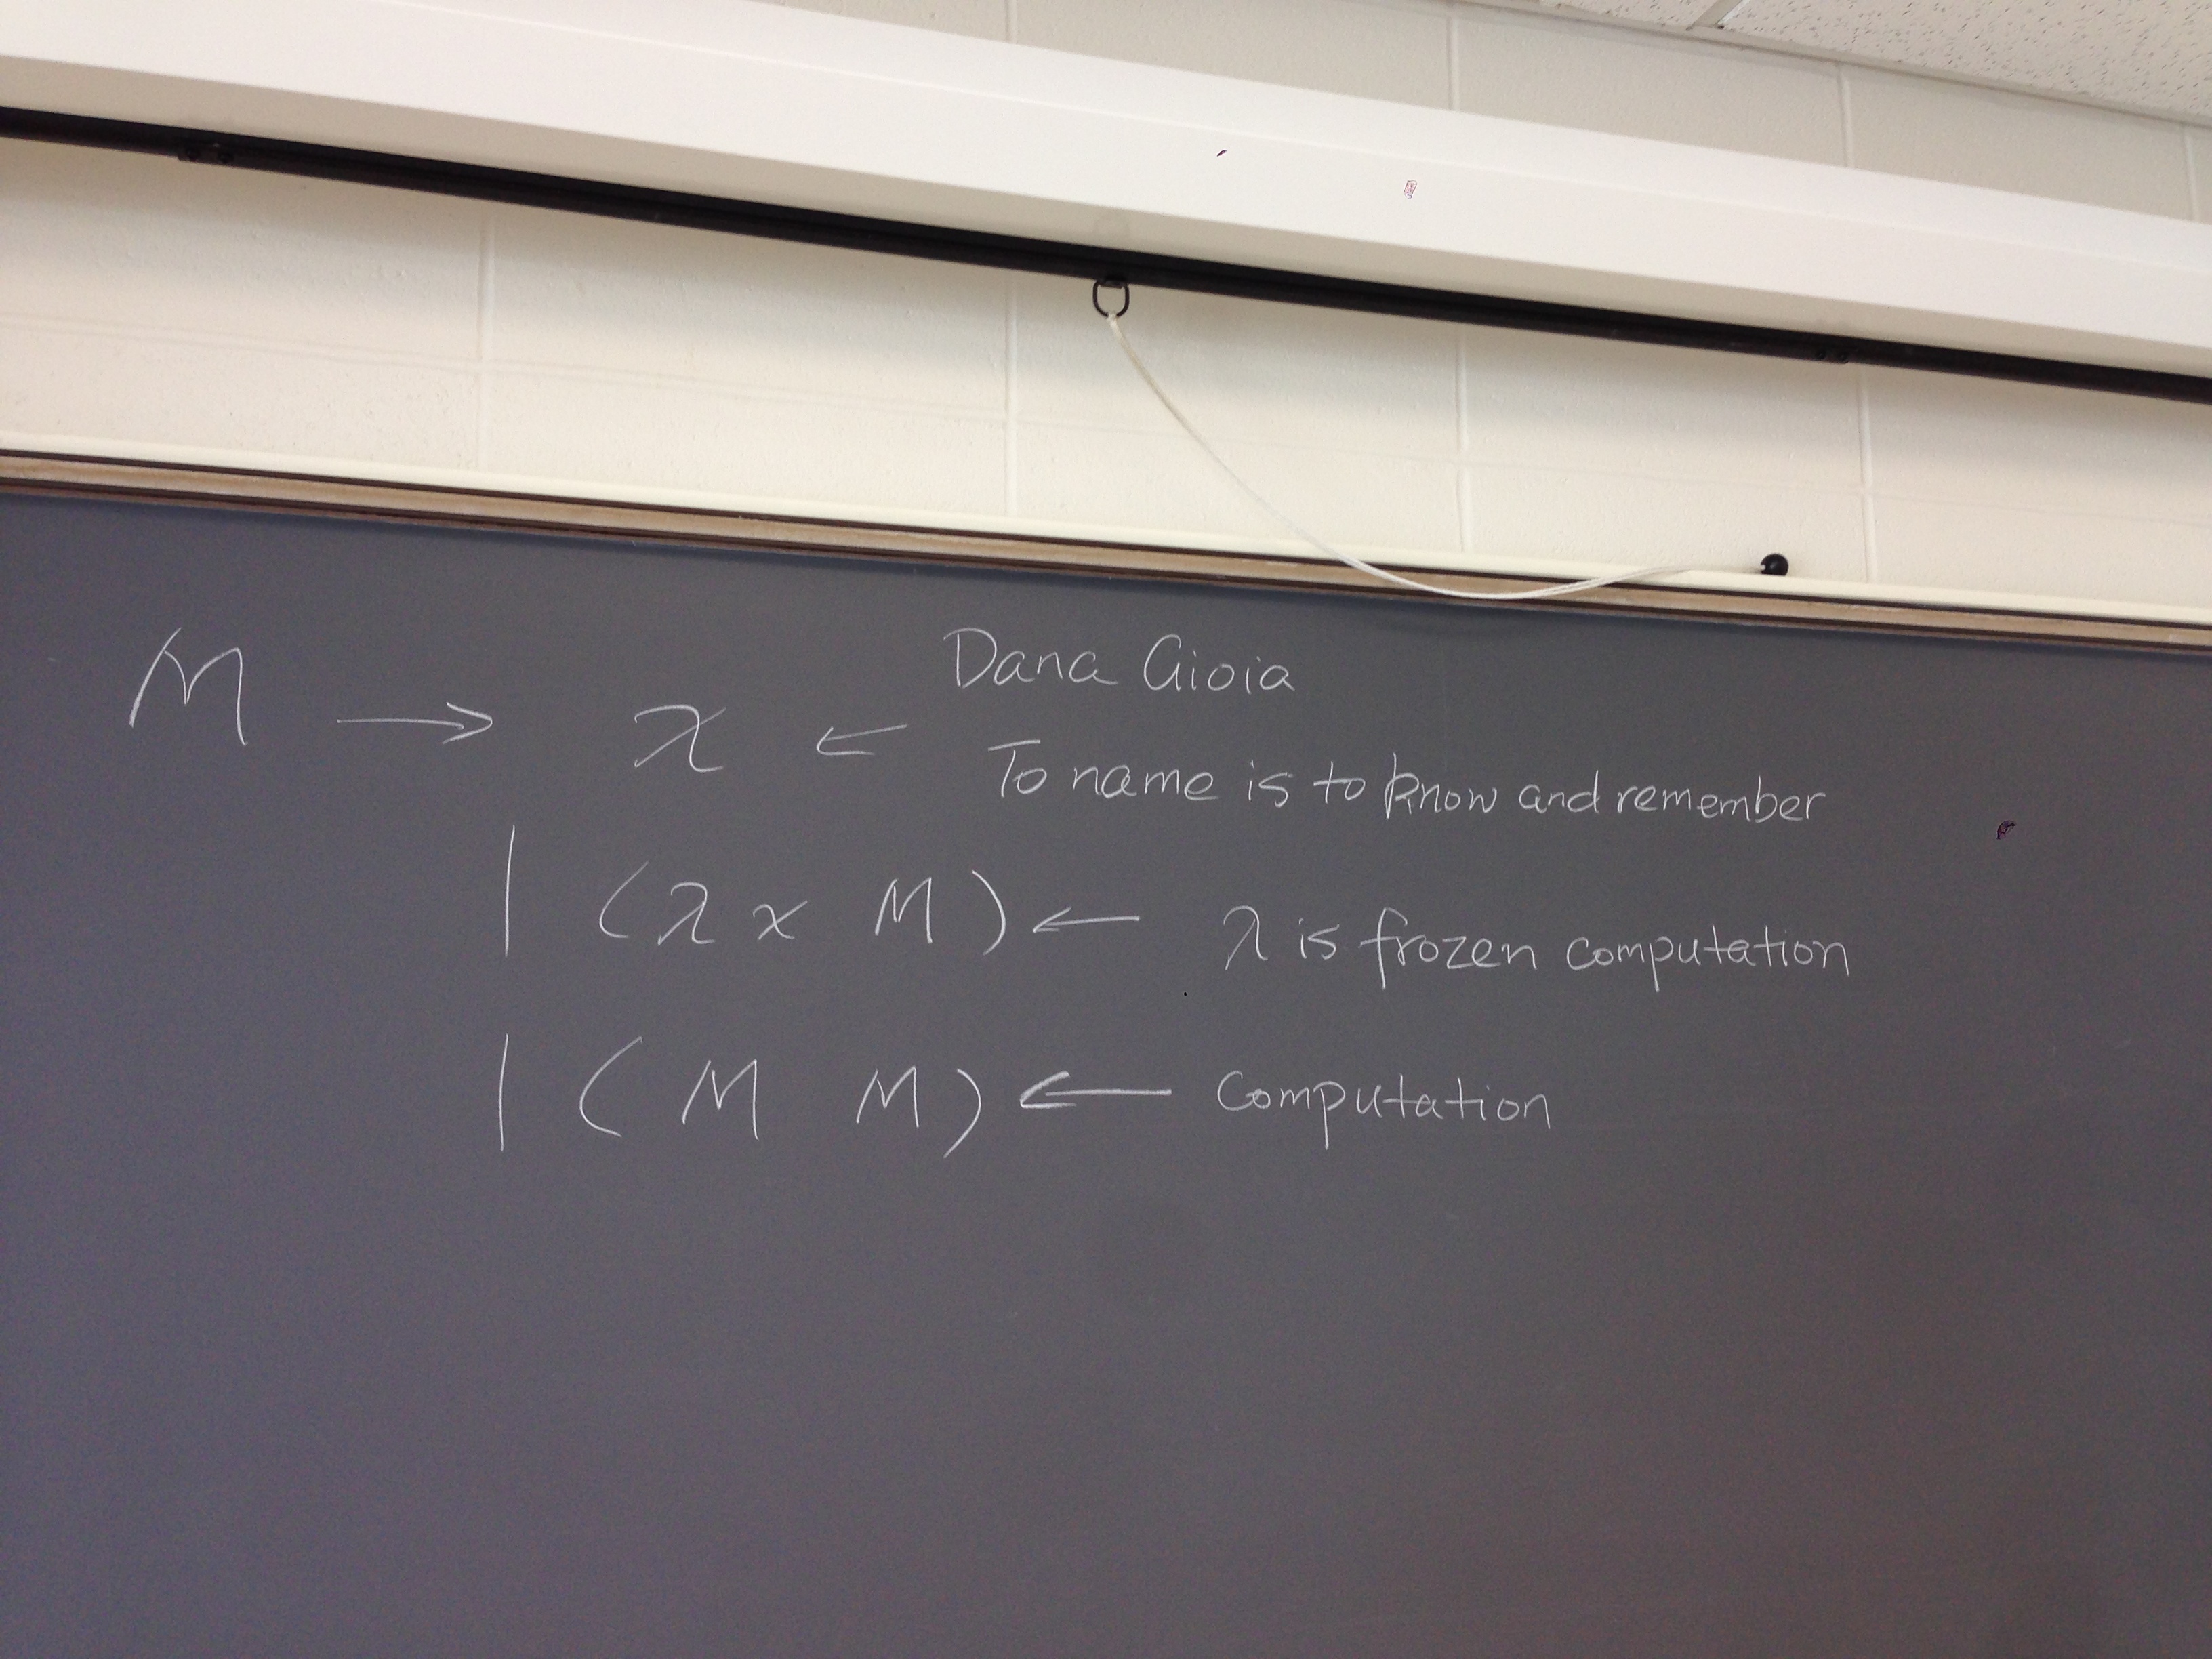 Dana Gioia
M → x ← To name is to know and remember
| (λ x M) ← λ is frozen computation
| (M M) ← Computation